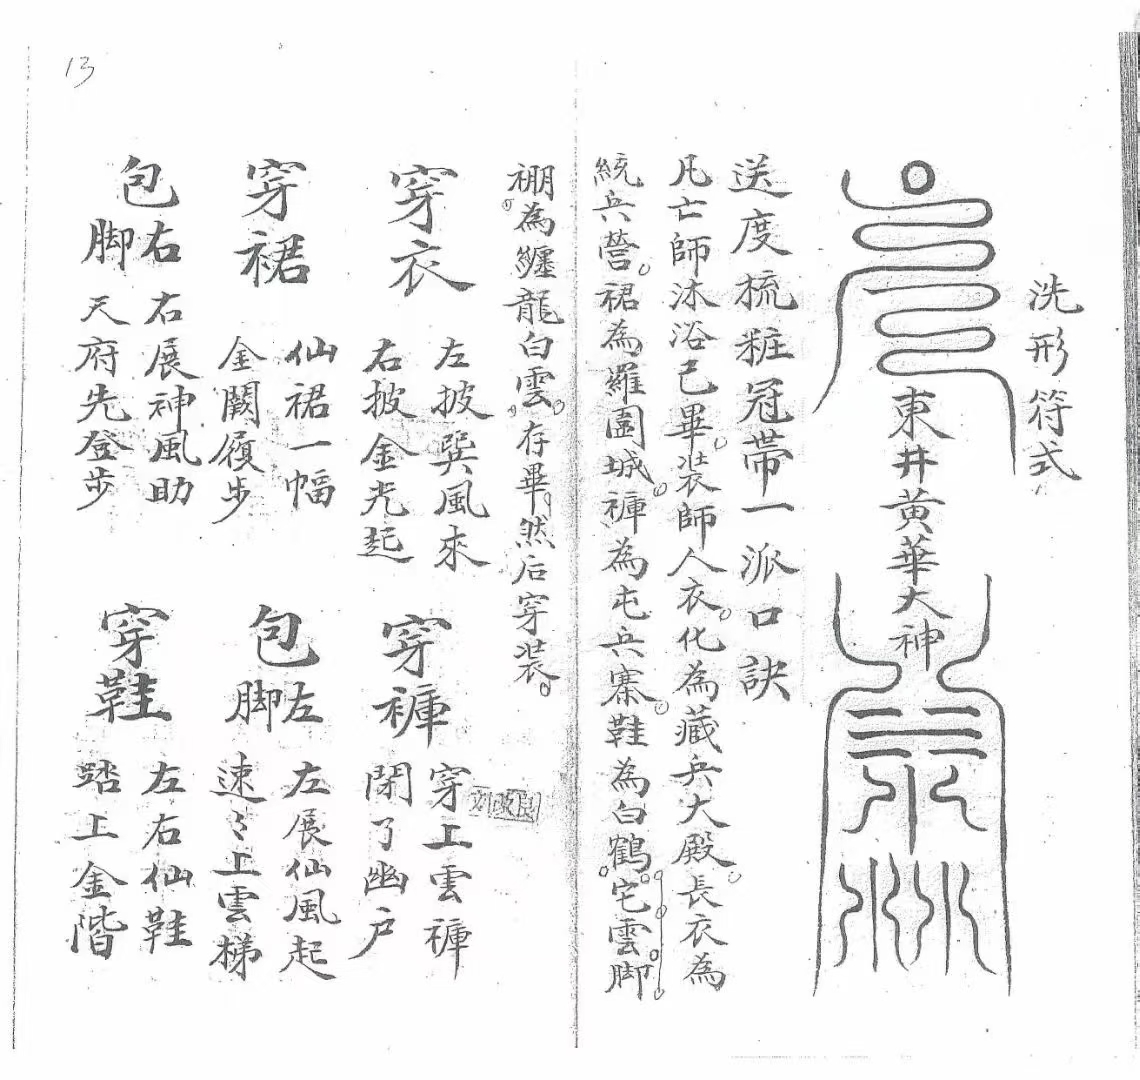 洗形符式
東井黃華大神
送度梳粧冠帶一派口訣
凡亡師沐浴已畢。裝師人衣。化為藏兵大殿。長衣為
統兵營。裙為羅園城。褲為屯兵寨。鞋為白鶴。宅雲。脚
棚。為纏龍白雲。存畢。然后穿裝。
穿衣
左披巽風來
右披金光起
穿褲
穿上雲褲
閉了幽户
穿裙
仙裙一幅
金闕履步
包左脚
左展仙風起
速々上雲梯
包右脚
右展神風助
天府先登步
穿鞋
左右仙鞋
踏上金階
13